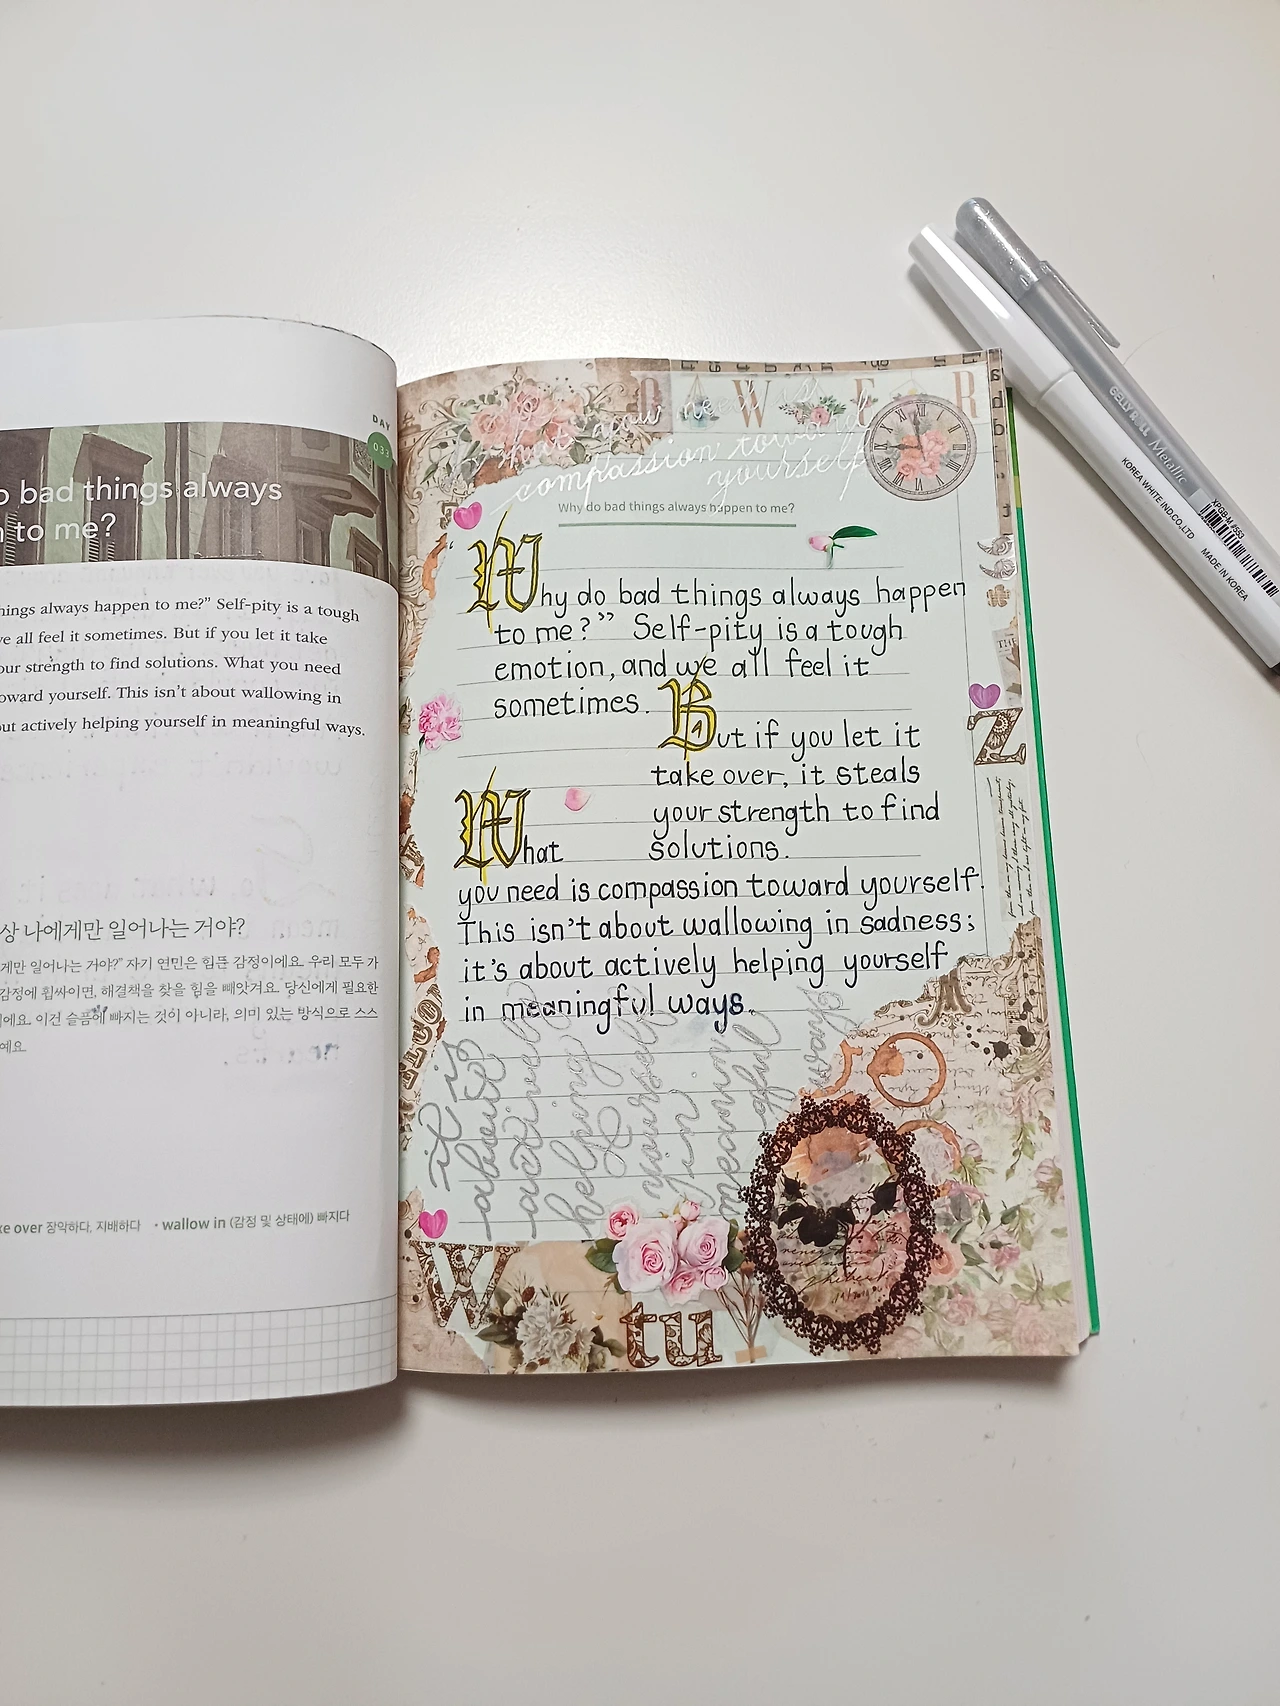 DAY
033
o bad things always
n to me?
hings always happen to me?” Self-pity is a tough
ve all feel it sometimes. But if you let it take
our strength to find solutions. What you need
oward yourself. This isn’t about wallowing in
out actively helping yourself in meaningful ways.
상 나에게만 일어나는 거야?
게만 일어나는 거야?” 자기 연민은 힘든 감정이에요. 우리 모두 가
감정에 휩싸이면, 해결책을 찾을 힘을 빼앗겨요. 당신에게 필요한
에요. 이건 슬픔에 빠지는 것이 아니라, 의미 있는 방식으로 스스
예요.
ke over 장악하다, 지배하다 • wallow in (감정 및 상태에) 빠지다
W E R
what you need is
compassion toward
yourself
Why do bad things always happen to me?
Why do bad things always happen
to me?” Self-pity is a tough
emotion, and we all feel it
sometimes. But if you let it
take over, it steals
your strength to find
solutions.
What
you need is compassion toward yourself.
This isn’t about wallowing in sadness;
it’s about actively helping yourself
in meaningful ways.
it is
about
actively
helping
yourself
in
meanin
gful
ways
Z
W
tu
GELLY ROLL Metallic
XPGB-M #553
KOREA WHITE IND.CO.,LTD MADE IN KOREA